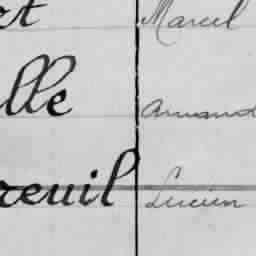 ot Marcel
lle Armand
reuil Lucien